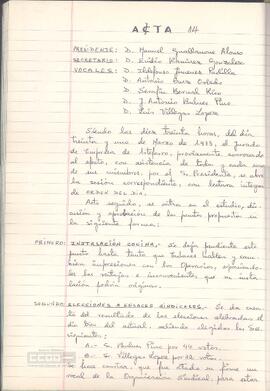 ACTA 14
PRESIDENTE: D. Manuel Alonso
SECRETARIO: D. Emilio Ramírez González
VOCALES: D. Ildefonso Jimenez Padilla
D. Antonio Oviedo
D. Serafín Bernal Rico
D. J. Antonio Bulnes Pino
D. Luis Villegas Lopez
Siendo las diez treinta horas, del día
treinta y uno de Marzo de 1973, el Jurado
de Empresa de previamente convocado
al efecto, con asistencia de todos y cada uno
de sus miembros, por el Sr. Presidente, se abre
la sesión correspondiente, con lectura íntegra
de ORDEN DEL DIA.
Acto seguido, se entra en el estudio, dis-
cusión y aprobación de los puntos propuestos en
la siguiente forma:
PRIMERO: INSTALACIÓN COCINA.- Se deja pendiente este
punto hasta tanto que Bulnes hable y cam-
bien impresiones con los Operarios, exponiendo-
les las ventajas e inconvenientes, que su insta-
lación podía originar.
SEGUNDO: ELECCIONES A ENLACES SINDICALES.- Se da cuen-
ta del resultado de las elecciones celebradas el
día del actual, saliendo elegidos los
siguientes:
A.- S. Bulnes Pino por 44 votos.
B.- S. Villegas Lopez por 42 votos.
Se hace constar, que fue citado en firme un
vocal de la Organización Sindical, para estar
CCOO